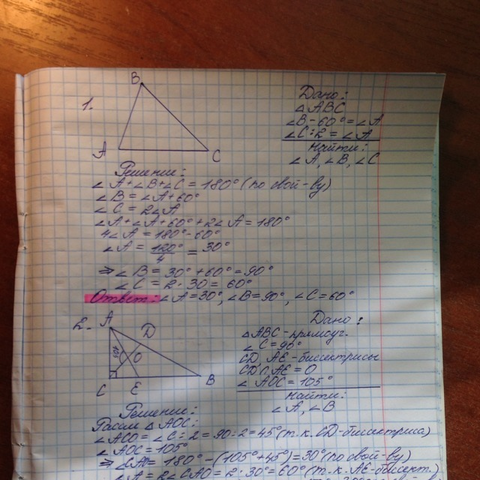 1.
B
A
C
Дано:
△ABC
∠B-60°=∠A
∠C:2=∠A
Найти:
∠A, ∠B, ∠C
Решение:
∠A+∠B+∠C=180° (по свой-ву)
∠B=∠A+60°
∠C=2∠A
∠A+∠A+60°+2∠A=180°
4∠A=180°-60°
∠A=120°/4=30°
⇒∠B=30°+60°=90°
∠C=2·30=60°
Ответ: ∠A=30°, ∠B=90°, ∠C=60°
2.
A
D
O
C
E
B
Дано:
△ABC-прямоуг.
∠C=90°
CD, AE-биссектрисы
CD∩AE=O
∠AOC=105°
Найти:
∠A, ∠B
Решение:
Рассм △AOC:
∠ACO=∠C:2=90:2=45° (т.к. CD-биссектриса)
∠AOC=105°
=180°-(105°+45°)=30° (по свой-ву)
∠A=2∠CAO=2·30°=60° (т.к. AE-биссект.)